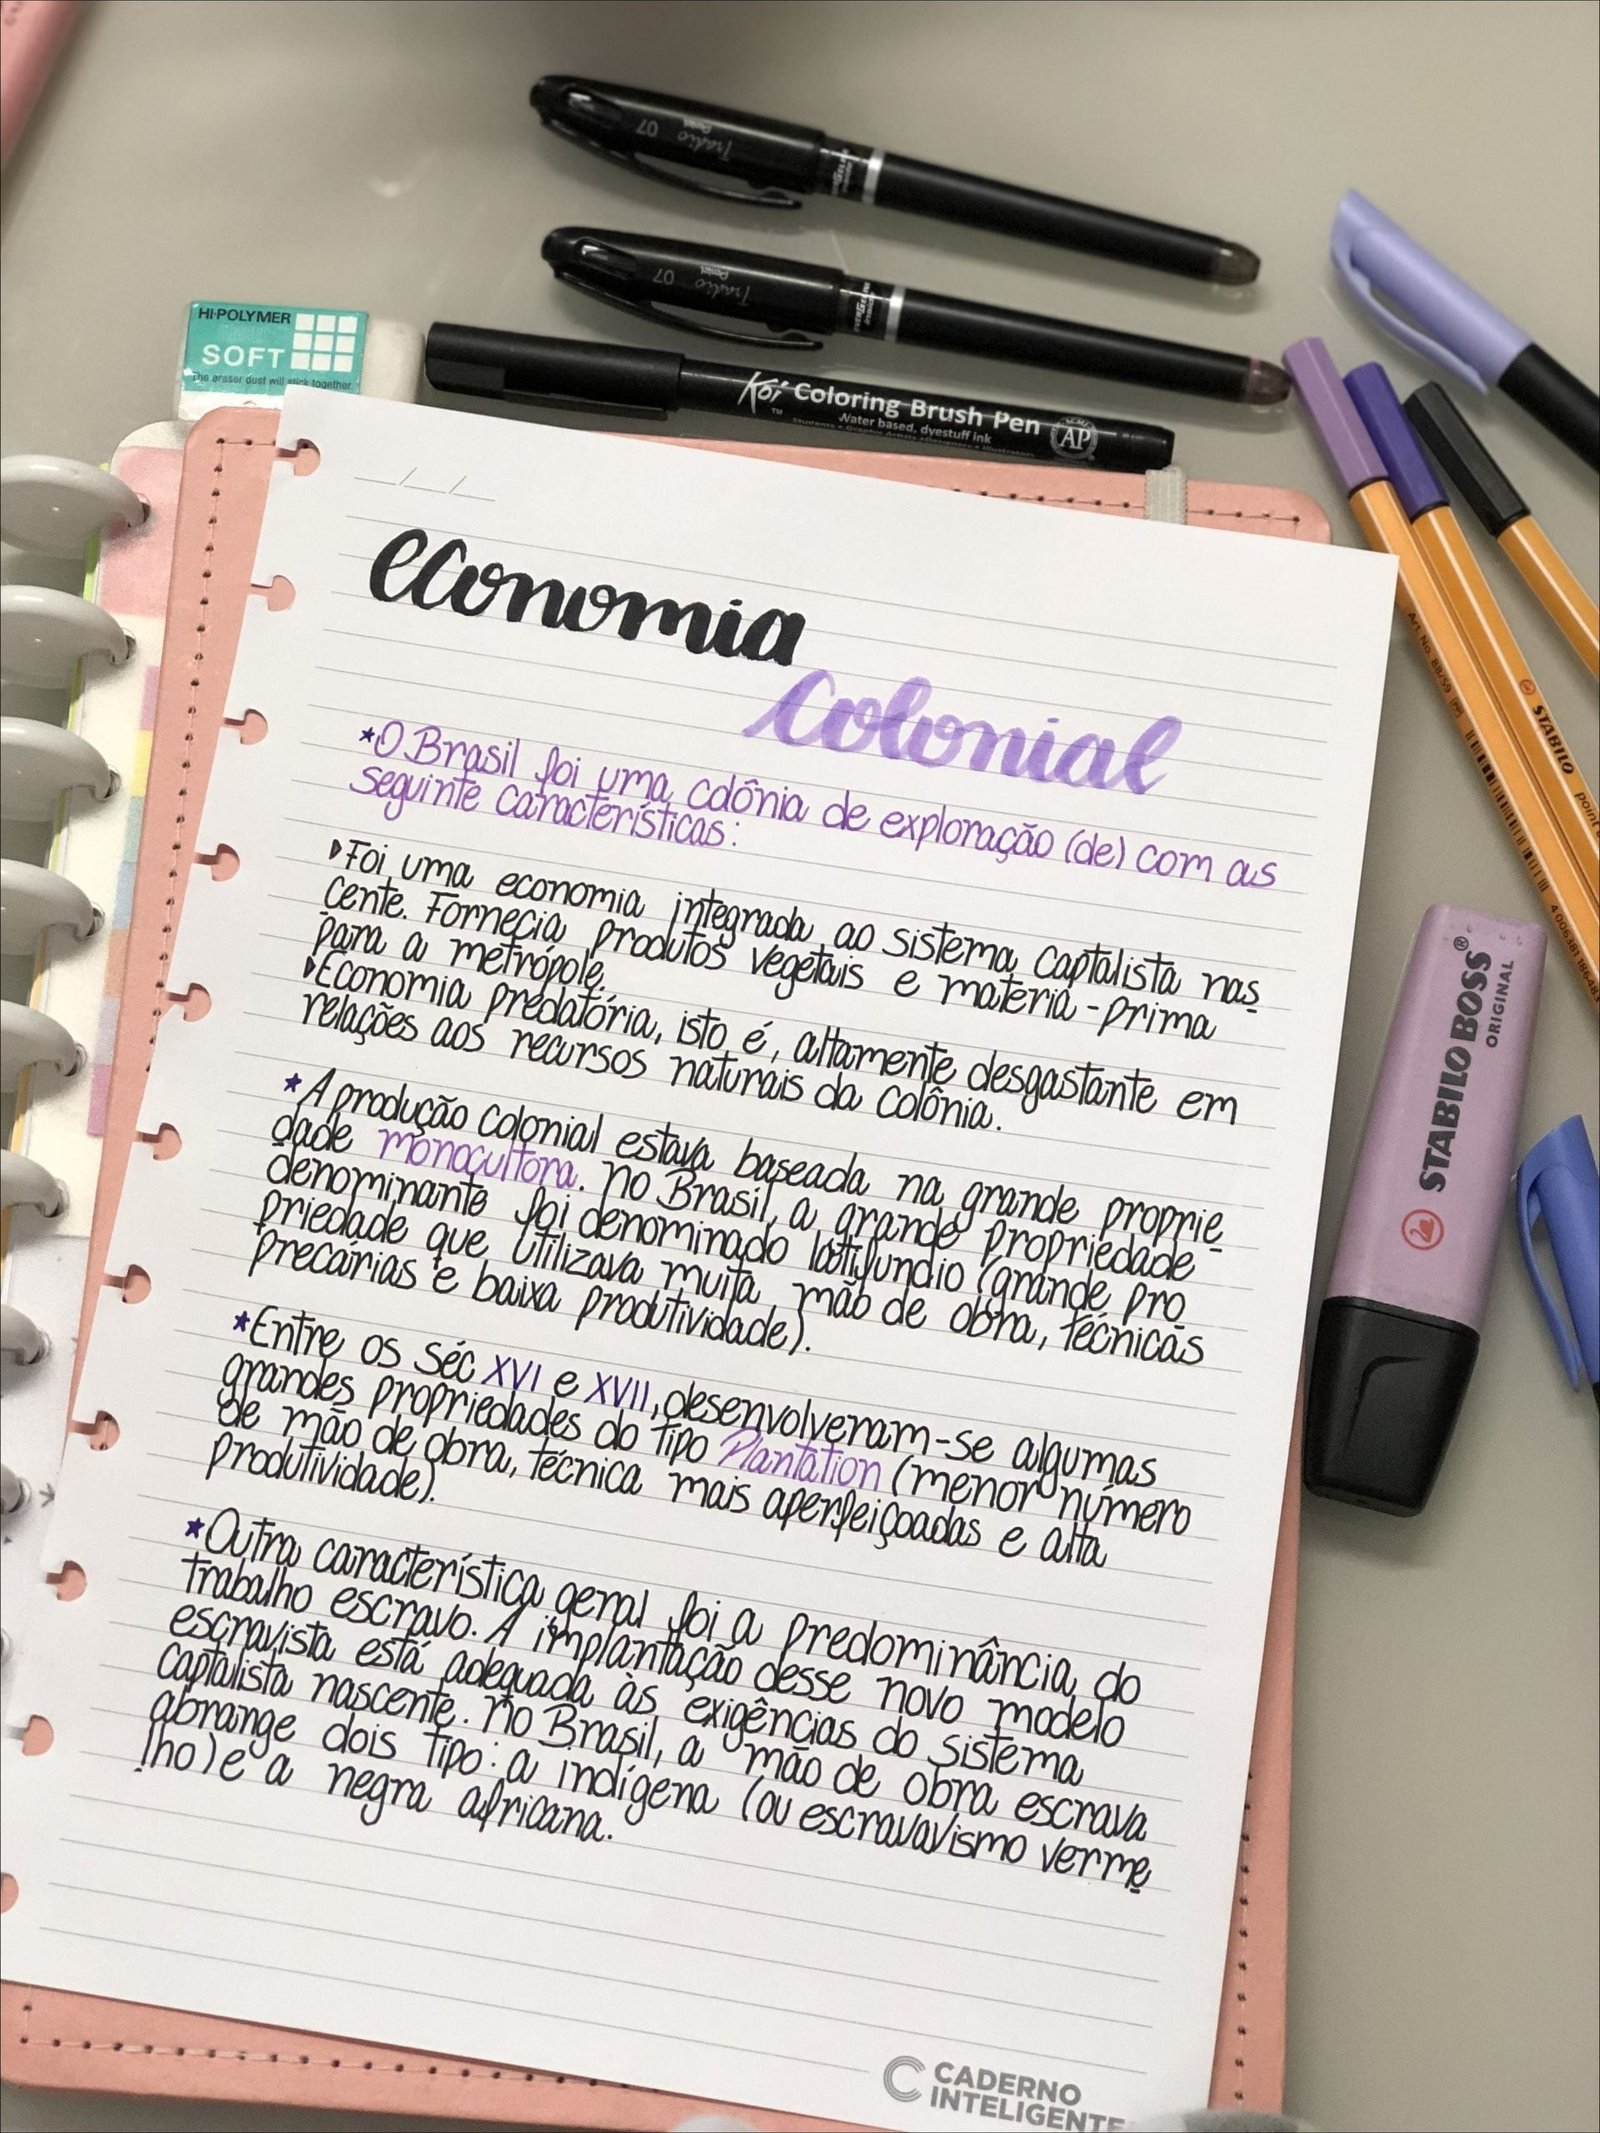 Tradio Pentel 07
EVERGEL INK
Tradio Pentel 07
EVERGEL INK
HI-POLYMER
SOFT
The eraser dust will stick together.
Koi Coloring Brush Pen
TM Water based, dyestuff ink
AP
economia
colonial
*O Brasil foi uma colônia de exploração (de) com as
seguinte características:
Foi uma economia integrada ao sistema captalista nas
cente. Fornecia produtos vegetais e materia-prima
para a metrópole.
Economia predatória, isto é, altamente desgastante em
relações aos recursos naturais da colônia.
*A produção colonial estava baseada na grande proprie
dade monocultora. No Brasil, a grande propriedade
denominante foi denominado latifundio (grande pro
priedade que utilizava muita mão de obra, técnicas
precárias e baixa produtividade).
*Entre os séc XVI e XVII, desenvolveram-se algumas
grandes propriedades do tipo Plantation (menor número
de mão de obra, técnica mais aperfeiçoadas e alta
produtividade).
*Outra característica geral foi a predominância do
trabalho escravo. A implantação desse novo modelo
escravista está adequada às exigências do sistema
captalista nascente. No Brasil, a mão de obra escrava
abrange dois tipo: a indígena (ou escravavismo verme
lho) e a negra africana.
CADERNO
INTELIGENTE
STABILO BOSS®
ORIGINAL
Art. No. 88/59
STABILO point